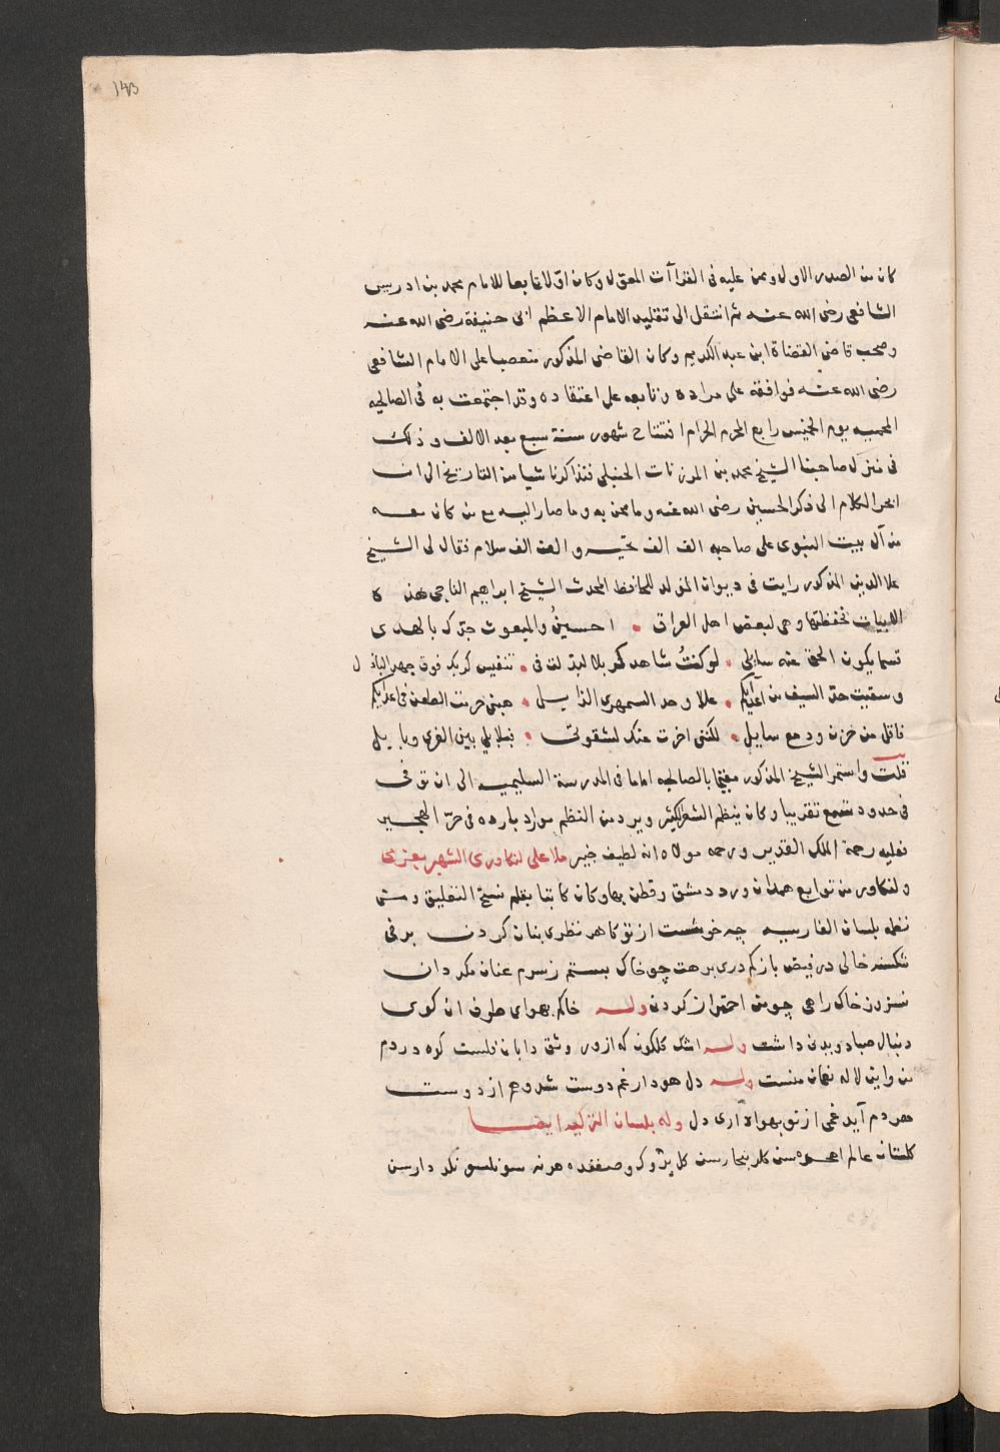 143
كان من الصدر الاول وممن عليه فى القراآت المعول وكان اولا تابعا للامام محمد بن ادريس
الشافعى رضى الله عنه ثم انتقل الى تقليد الامام الاعظم ابى حنيفة رضى الله عنه
وصحب قاضى القضاة ابن عبد الكريم وكان القاضى المذكور متعصبا على الامام الشافعى
رضى الله عنه فوافقه على مراده وتابعه على اعتقاده وقد اجتمعت به فى الصالحيه
المحميه يوم الخميس رابع المحرم الحرام افتتاح شهور سنة سبع بعد الالف وذلك
فى منزل صاحبنا الشيخ محمد بن المرزنات الحنبلى فتذاكرنا شيا من التاريخ الى ان
انجر الكلام الى ذكر الحسين رضى الله عنه وما محن به وما صار اليه مع من كان معه
من آل بيت النبوى على صاحبه الف الف تحيه والف الف سلام فقال لى الشيخ
علا الدين المذكور رايت فى ديوان المولد للحافظ المحدث الشيخ ابراهيم الناجى هذه
الابيات فحفظتها وهى لبعض اهل العراق • احسينُ والمبعوث جدك بالهدى
قسما يكون الحق عنه سايلى • لو كنتُ شاهد كربلا لبذلت فى • تنفيس كربك فوق جهد الباذل
وسقيت حد السيف من اعدايكم • عللا وحد السمهرى الذابل • هبنى حرمت الطعن فى اعدايكم
فاقل من حزن ودمع سايل • لكننى اخرت عنك لشقوتى • فبلابلى بين الغرى وبابل
قلت واستمر الشيخ المذكور مقيما بالصالحيه اماما فى المدرسة السليميه الى ان توفى
فى حدود تسع تقريبا وكان ينظم الشعر الكثير ويرد من النظم موارد بارده فى حر الهجير
فعليه رحمة الملك القدير ورحمه مولاه انه لطيف خبير ملا على لنكاورى الشهير بعزتى
ولنكاور من توابع همدان ورد دمشق وقطن بها وكان كاتبا بقلم نسخ التعليق ومن
نظمه بلسان الفارسيه چه خوشست از تو كاهر نظرى بنان كردن برقى
فيض بازكم درى برهت چو خاك بستم زسرم عنان مكردان
احتراز كردن وله خاكم بهواى طرف ان كوى
دنبال صبا دويدن داشت وله اشك كلكون كه ازو دامان منست كوه دردم
من واين لاله نعمان منست وله دل هودار غم دوست شد وهم از دوست
هردم آيد غمى از تو بهوادارى دل وله بلسان التركيه ايضا
كلستان عالم